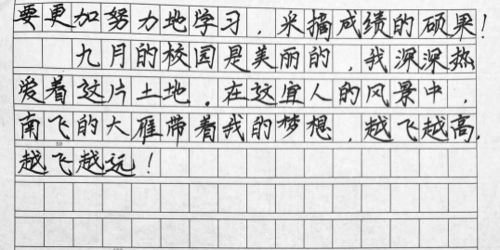 要更加努力地学习，采摘成绩的硕果！
九月的校园是美丽的，我深深热
爱着这片土地。在这宜人的风景中，
南飞的大雁带着我的梦想，越飞越高，
越飞越远！